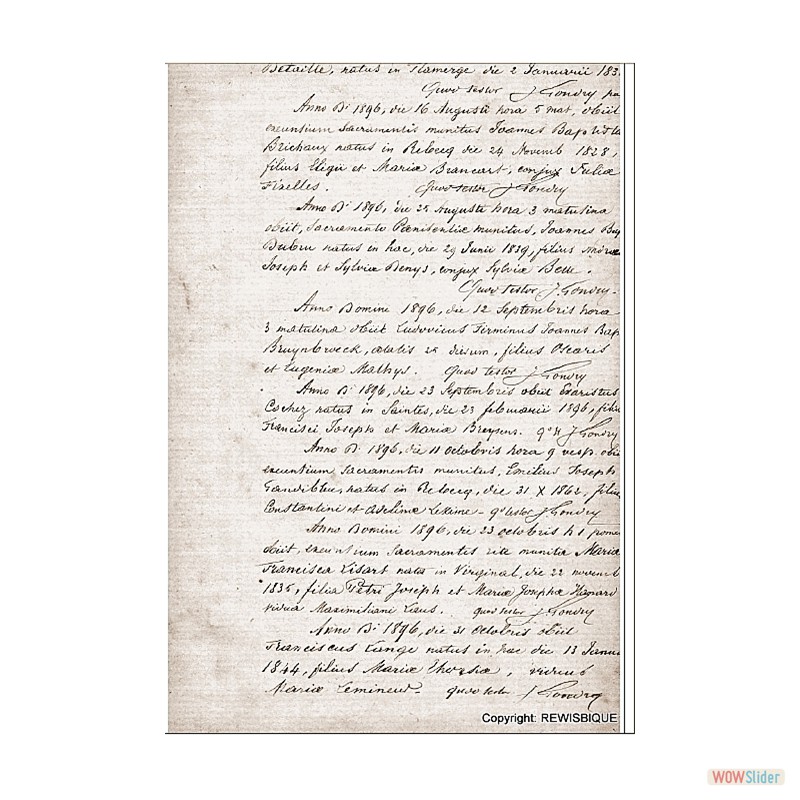 Bataille, natus in Flamerge die 2 Januarii 183
Quod testor J Gondry pa
Anno Dⁱ 1896, die 16 Augusti hora 5 mat, obiit
exeuntium Sacramentis munitus Joannes Baptista
Brichaux natus in Rebecq die 24 Novemb 1828,
filius Eligii et Mariæ Brancart, conjux Juliæ
Fixelles. Quod testor J Gondry
Anno Dⁱ 1896, die 25 Augusti hora 3 matutina
obiit, Sacramento Pœnitentiæ munitus, Joannes Bap
Dubru natus in hac, die 29 Junii 1839, filius Andreæ
Joseph et Sylviæ Denys, conjux Sylviæ
Quod testor J. Gondry.
Anno Domini 1896, die 12 Septembris hora
3 matutina obiit Ludovicus Firminus Joannes Bap
Bruynbroeck, ætatis 25 dierum, filius Oscaris
et Eugeniæ Mathys. Quod testor J Gondry
Anno Dⁱ 1896, die 23 Septembris obiit Evaristus
Cochez natus in Saintes, die 23 februarii 1896, filiu
Francisci Joseph et Mariæ Breysens. qᵒ tt J Gondry
Anno Dⁱ 1896, die 11 octobris hora 9 vesp. obiit
exeuntium Sacramentis munitus, Emilius Joseph
natus in Rebecq, die 31 X 1862, filiu
Constantini et Adelinæ qᵒ testor J Gondry
Anno Domini 1896, die 23 octobris h 1 pome
obiit, exeuntium Sacramentis rite munita Maria
Francisca Lisart nata in Virginal, die 22 novemb
1835, filia Petri Joseph et Mariæ Josephæ Hanard
vidua Maximiliani Laus. quod testor J. Gondry
Anno Dⁱ 1896, die 31 Octobris obiit
Franciscus Lange natus in hac die 13 Janua
1844, filius Mariæ Theresiæ, viduus
Mariæ Lemineur. quod testr J Gondry
Copyright: REWISBIQUE
WOWSlider